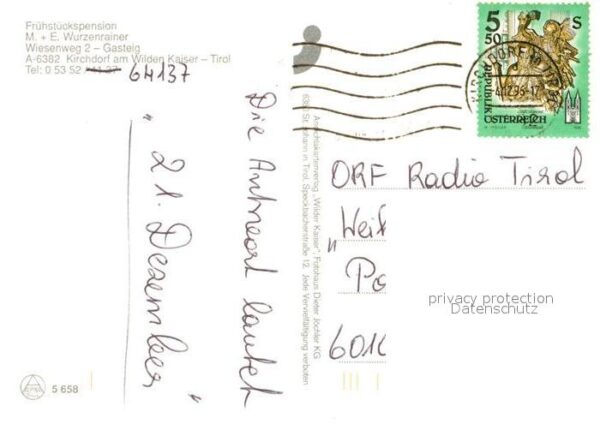 Frühstückspension
M. + E. Wurzenrainer
Wiesenweg 2 – Gasteig
A-6382 Kirchdorf am Wilden Kaiser – Tirol
Tel: 0 53 52 41 27 64137
Die Antwort lautet
„21. Dezember"
Ansichtskartenverlag „Wilder Kaiser", Fotohaus Dieter Jöchler KG
6380 St. Johann in Tirol, Speckbacherstraße 12. Jede Vervielfältigung verboten
5 50 S
REPUBLIK
ÖSTERREICH
ORF Radio Tirol
„Weih
Po
6010
privacy protection
Datenschutz
5 658